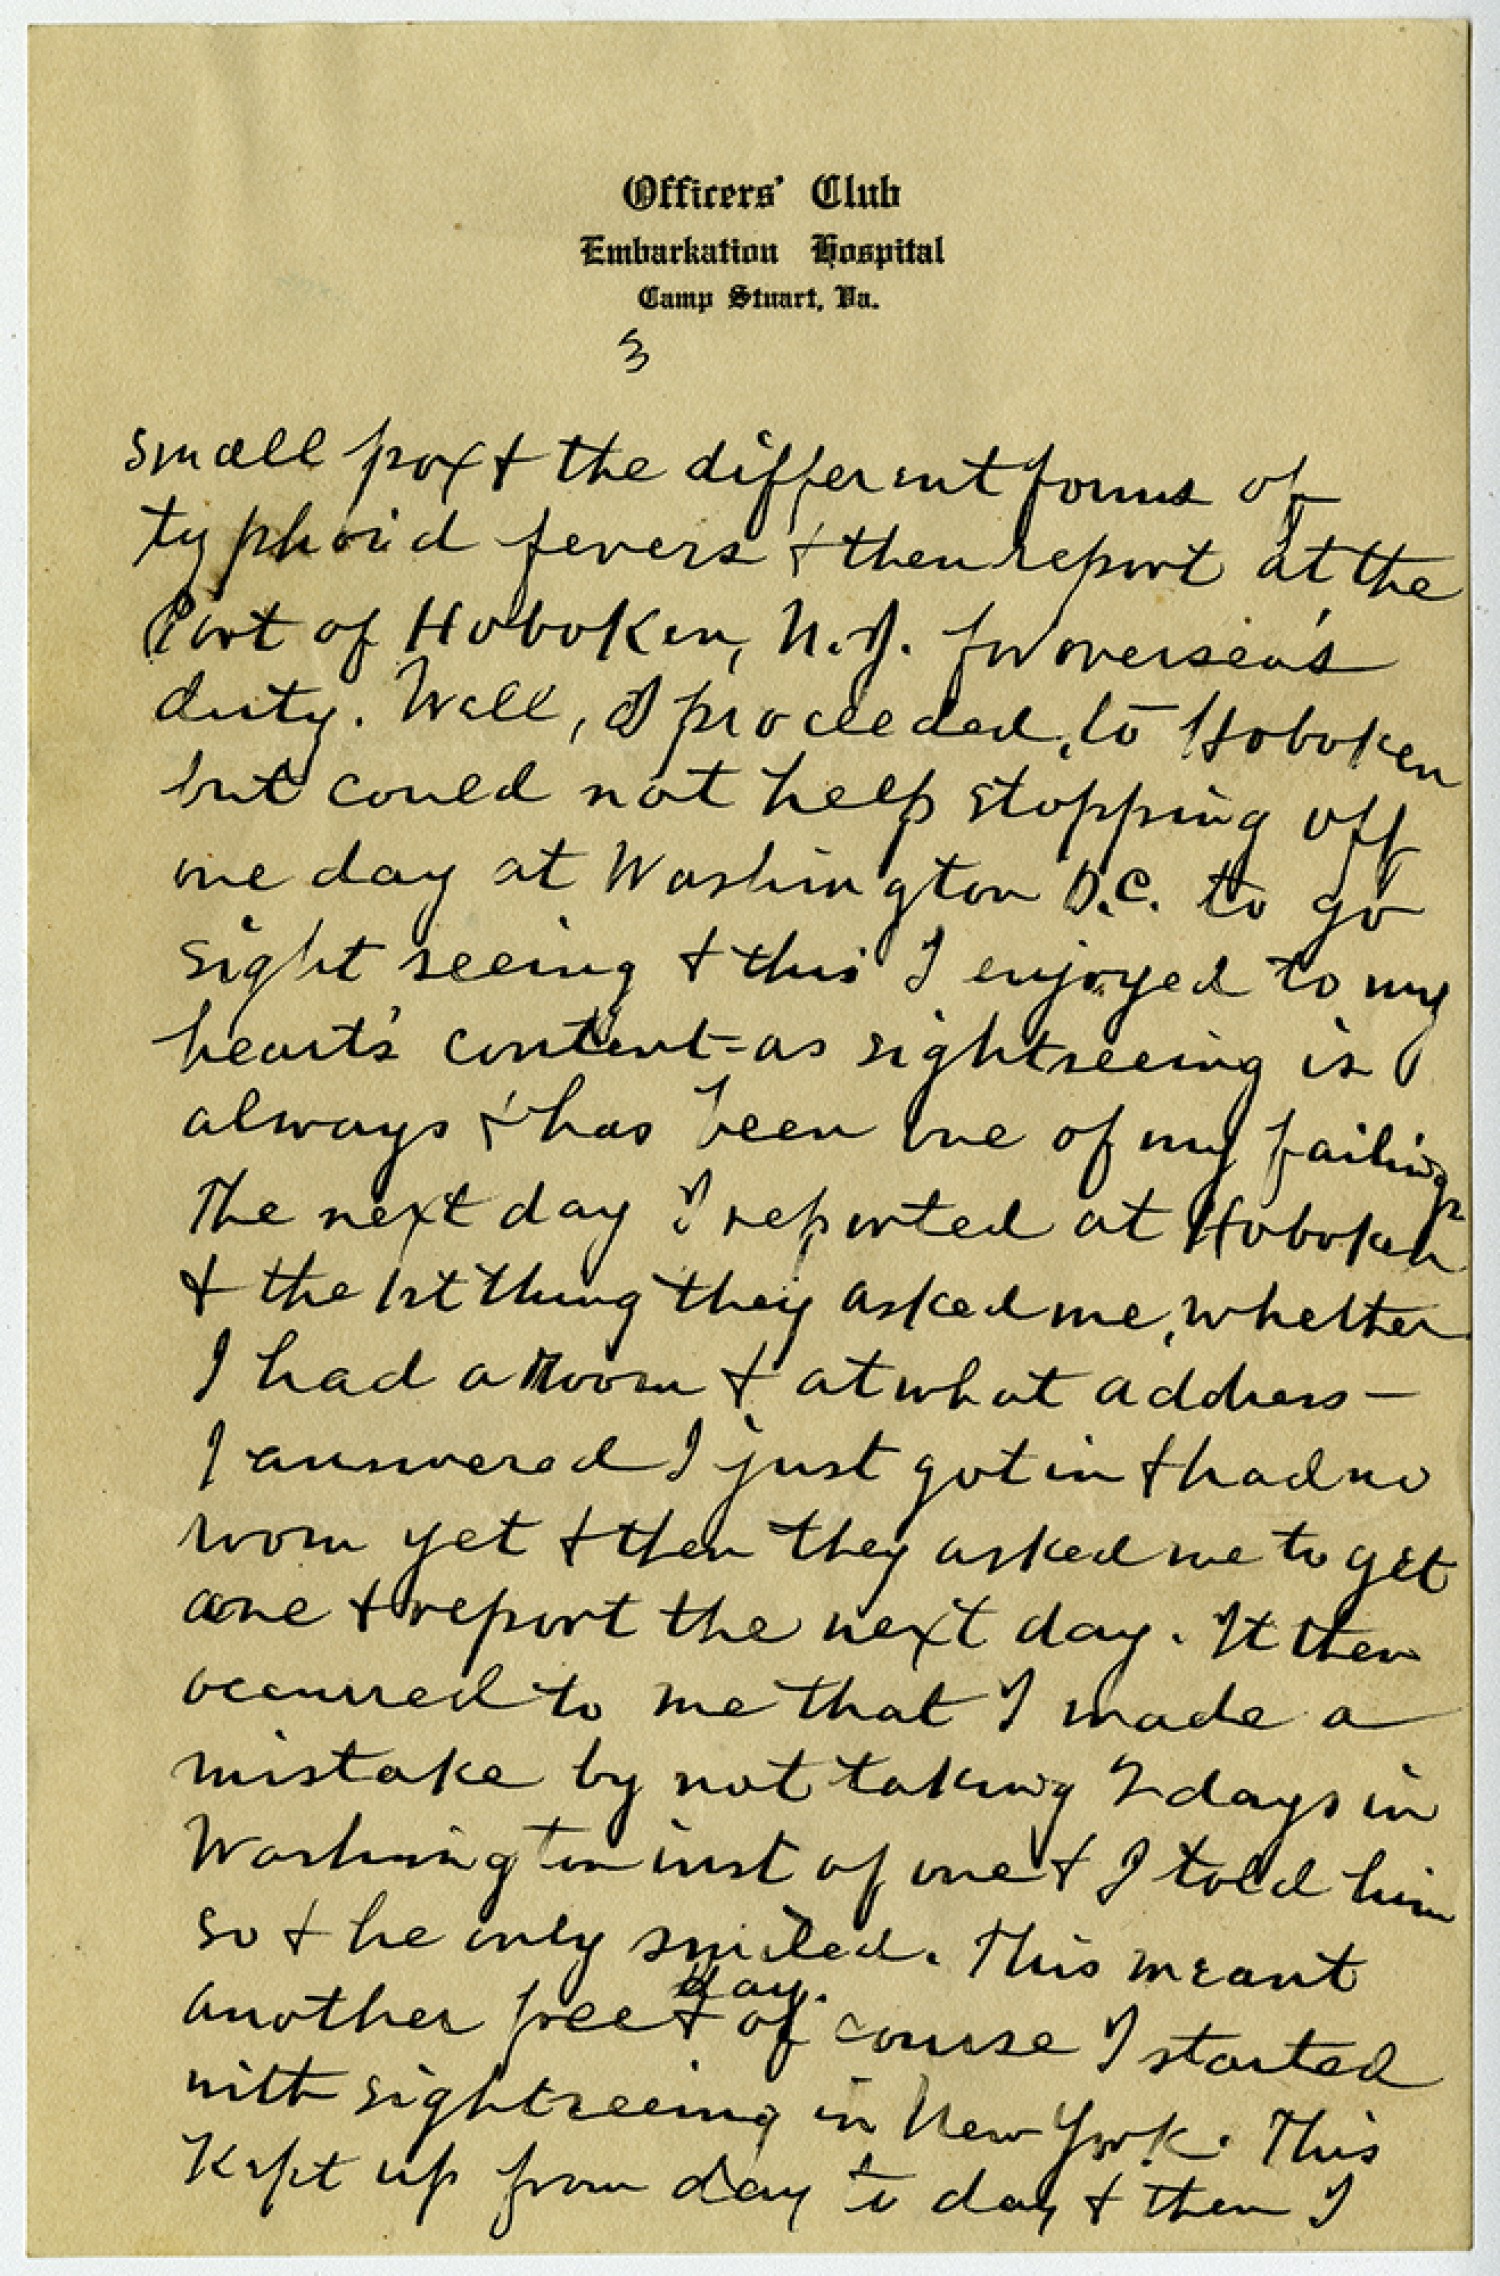 Officers' Club
Embarkation Hospital
Camp Stuart, Va.
3
small pox & the different forms of
typhoid fevers & then report at the
Port of Hoboken, N.J. for oversea's
duty. Well, I proceeded, to Hoboken
but could not help stopping off
one day at Washington D.C. to go
sight seeing & this I enjoyed to my
heart's content - as sightseeing is
always & has been one of my failings
The next day I reported at Hoboken
& the 1st thing they asked me, whether
I had a room & at what address -
I answered I just got in & had no
room yet & then they asked me to get
one & report the next day. It then
occurred to me that I made a
mistake by not taking 2 days in
Washington inst of one & I told him
so & he only smiled. This meant
another free day. & of course I started
with sightseeing in New York. This
Kept up from day to day & then I